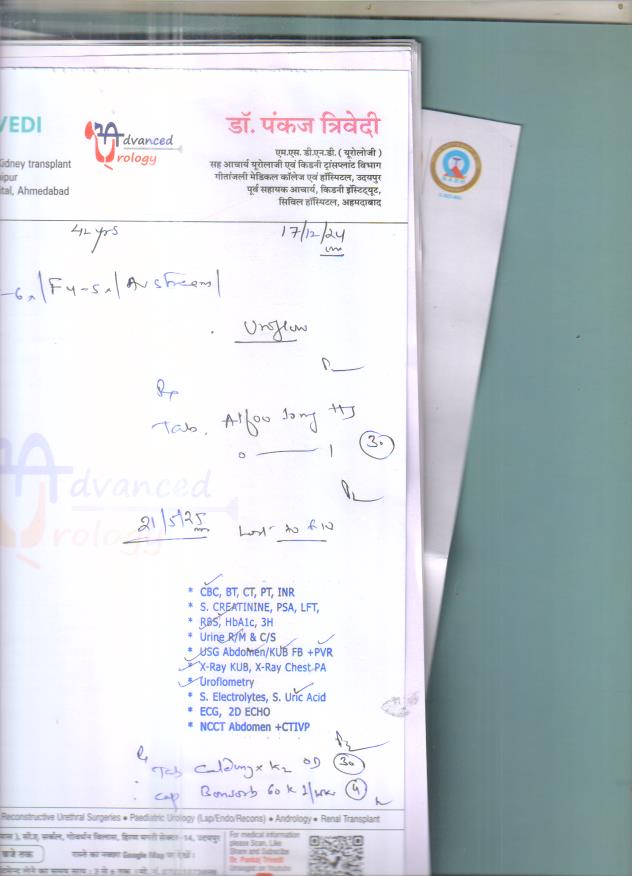 VEDI
Kidney transplant
ipur
ital, Ahmedabad
Advanced
Urology
डॉ. पंकज त्रिवेदी
एम.एस. डी.एन.बी. ( यूरोलोजी )
सह आचार्य यूरोलाजी एवं किडनी ट्रांसप्लांट विभाग
गीतांजली मेडिकल कॉलेज एवं हॉस्पिटल, उदयपुर
पूर्व सहायक आचार्य, किडनी इंस्टिट्यूट,
सिविल हॉस्पिटल, अहमदाबाद
42 yrs
17/12/24
Stream
Uroflow
Rx
Tab. Alfoo 10mg HS
0 — 1 30
Advanced
Urology
21/5/25 Lost to f/u
* CBC, BT, CT, PT, INR
* S. CREATININE, PSA, LFT,
* RBS, HbA1c, 3H
* Urine R/M & C/S
* USG Abdomen/KUB FB +PVR
* X-Ray KUB, X-Ray Chest PA
* Uroflometry
* S. Electrolytes, S. Uric Acid
* ECG, 2D ECHO
* NCCT Abdomen +CTIVP
Tab K2 OD 30
Cap 60 K 1/wk 4
Reconstructive Urethral Surgeries • Paediatric Urology (Lap/Endo/Recons) • Andrology • Renal Transplant
उदयपुर
बजे तक
रास्ते का नक्शा Google Map पर देखें।
For medical information
please Scan, Like
Share and Subscribe
Dr. Pankaj Trivedi
Urologist on Youtube